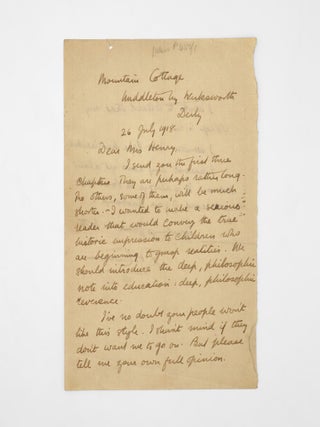 Mountain Cottage
Middleton by Wirksworth
Derby
26 July 1918
Dear Mrs Henry,
I send you the first three
chapters. They are perhaps rather long.
The others, some of them, will be much
shorter. - I wanted to make a serious
reader that would convey the true
historic impression to children who
are beginning to grasp realities. We
should introduce the deep, philosophic
note into education: deep, philosophic
reverence.
I've no doubt your people won't
like this style. I shan't mind if they
don't want me to go on. But please
tell me your own full opinion.